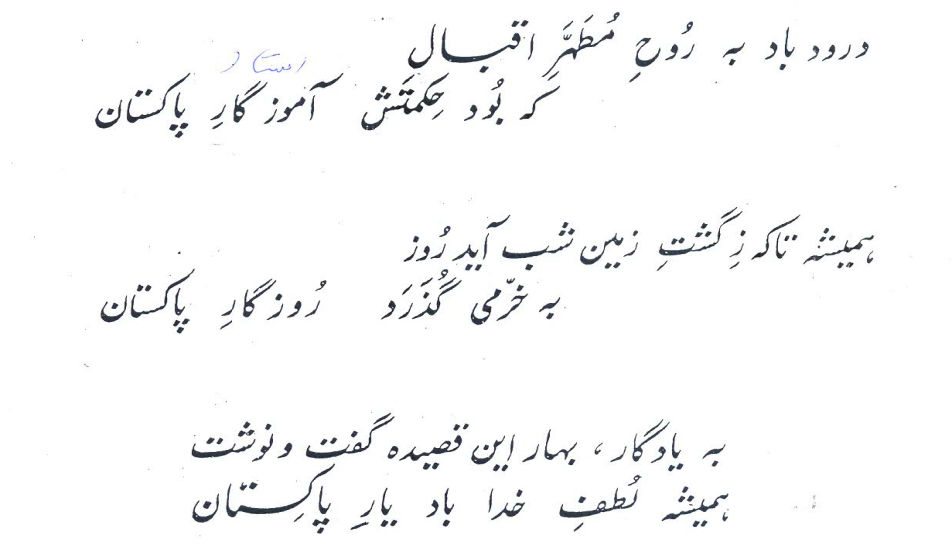 درود باد به رُوحِ مُطَهَّرِ اقبال
استاد
که بُود حِکمتَش آموزگارِ پاکستان
ہمیشہ تاکه زِ گشتِ زمین شب آید رُوز
به خرّمی گُذَرَد رُوزگارِ پاکستان
به یادگار، بهار این قصیده گفت و نوشت
ہمیشہ لُطفِ خدا باد یارِ پاکِستان